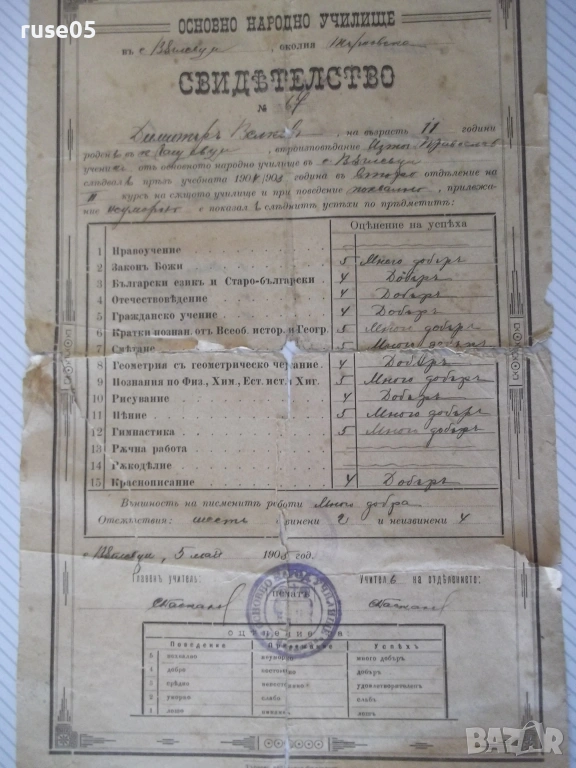 ruse05
ОСНОВНО НАРОДНО УЧИЛИЩЕ
въ с. околия
СВИДѢТЕЛСТВО
№
Димитъръ на възрасть 11 години
родомъ въ с. вѣроизповѣдание
ученикъ отъ основното народно училище въ с.
слѣдвалъ прѣзъ учебната година въ второ отдѣление на
II курсъ на сѫщото училище и при поведение похвално, прилежа-
ние неуморно е показалъ слѣднитѣ успѣхи по прѣдметитѣ:
Оцѣнение на успѣха
1 Нравоучение
2 Законъ Божи 5 Много добъръ
3 Български езикъ и Старо-български 4 Добъръ
4 Отечествовѣдение 4 Добъръ
5 Гражданско учение 4 Добъръ
6 Кратки познан. отъ Всеоб. истор. и Геогр. 5 Много добъръ
7 Смѣтане 5 Много добъръ
8 Геометрия съ геометрическо чертание 4 Добъръ
9 Познания по Физ., Хим., Ест. ист. и Хиг. 5 Много добъръ
10 Рисувание 4 Добъръ
11 Пѣние 5 Много добъръ
12 Гимнастика 5 Много добъръ
13 Рѫчна работа
14 Рѫкодѣлие
15 Краснописание 4 Добъръ
Външность на писменитѣ работи Много добра
Отсѫтствия: шесть извинени 2 и неизвинени 4
с. 5 май 1908 год.
Главенъ учитель: Учителъ на отдѣлението:
ОСНОВНО НАРОД. УЧИЛИЩЕ
печатъ
оцѣнения
Поведение Прилежание Успѣхъ
5 похвално неуморно много добъръ
4 добро постоянно добъръ
3 срѣдно удовлетворителенъ
2 укорно слабо слабъ
1 лошо никакво лошъ
BAZAR